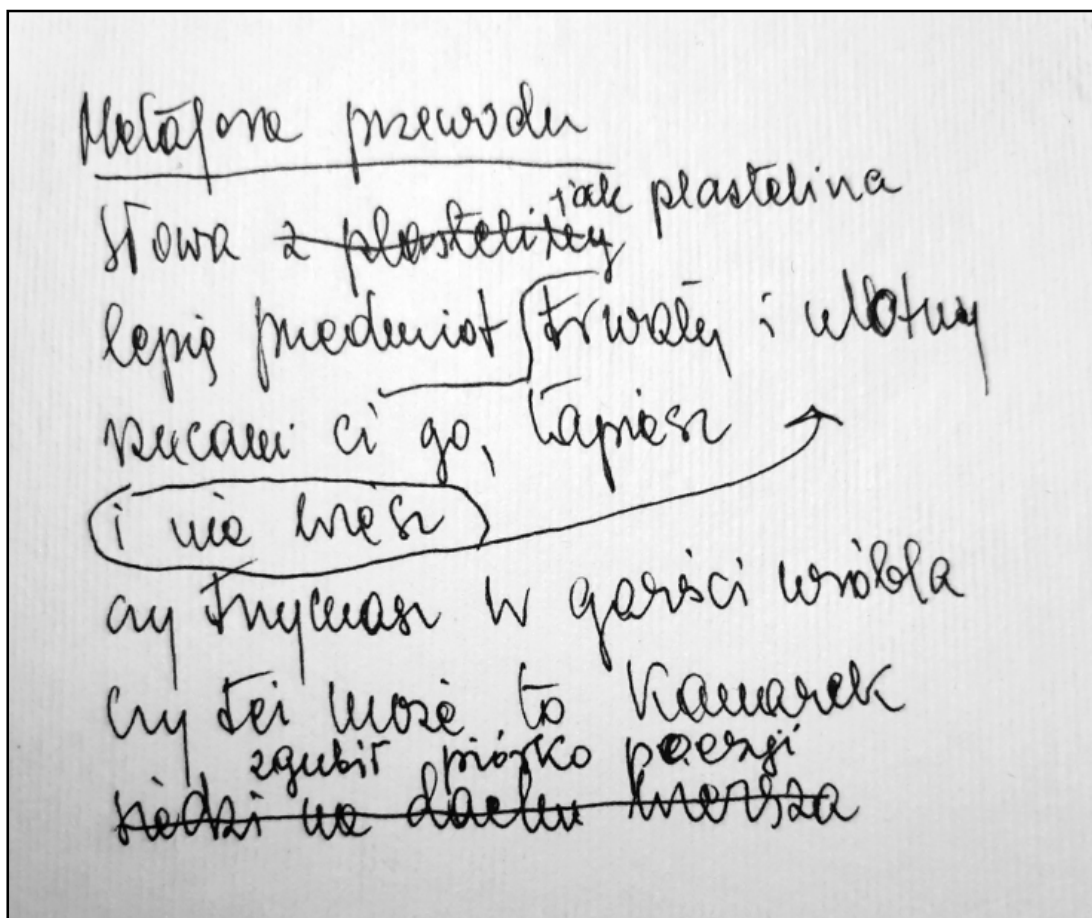 Metafora przewodu
jak plastelina
Słowa z plasteliny
lepię przedmiot trwały i ulotny
rzucam ci go, łapiesz
i nie wiesz
czy trzymasz w garści wróbla
czy też może to kanarek
zgubił piórko poezji
siedzi na dachu wiersza